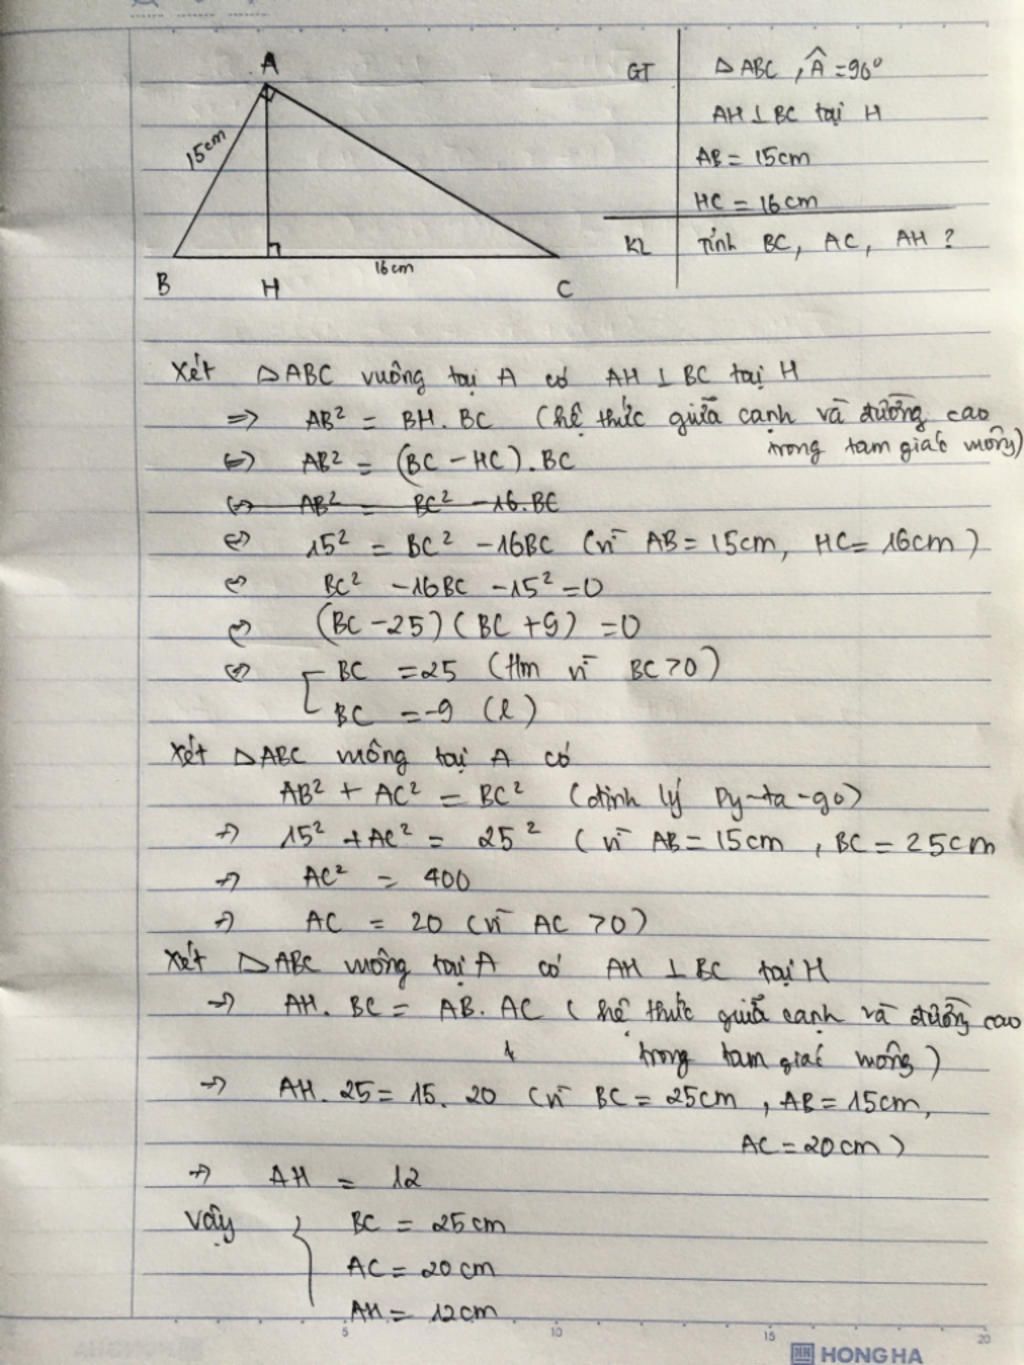 A
15cm
B
H
16cm
C
GT
△ABC, Â = 90°
AH ⊥ BC tại H
AB = 15cm
HC = 16cm
KL
Tính BC, AC, AH ?
Xét △ABC vuông tại A có AH ⊥ BC tại H
=> AB² = BH. BC (hệ thức giữa cạnh và đường cao
trong tam giác vuông)
<=> AB² = (BC - HC). BC
<=> AB² = BC² - 16.BC
<=> 15² = BC² - 16BC (vì AB = 15cm, HC = 16cm)
<=> BC² - 16BC - 15² = 0
<=> (BC - 25)(BC + 9) = 0
<=> [ BC = 25 (tm vì BC > 0)
BC = -9 (l)
Xét △ABC vuông tại A có
AB² + AC² = BC² (định lý Py-ta-go)
=> 15² + AC² = 25² (vì AB = 15cm, BC = 25cm
=> AC² = 400
=> AC = 20 (vì AC > 0)
Xét △ABC vuông tại A có AH ⊥ BC tại H
=> AH. BC = AB. AC (hệ thức giữa cạnh và đường cao
trong tam giác vuông)
=> AH. 25 = 15. 20 (vì BC = 25cm, AB = 15cm,
AC = 20cm)
=> AH = 12
Vậy { BC = 25cm
AC = 20cm
AH = 12cm
5 10 15 20
HONG HA